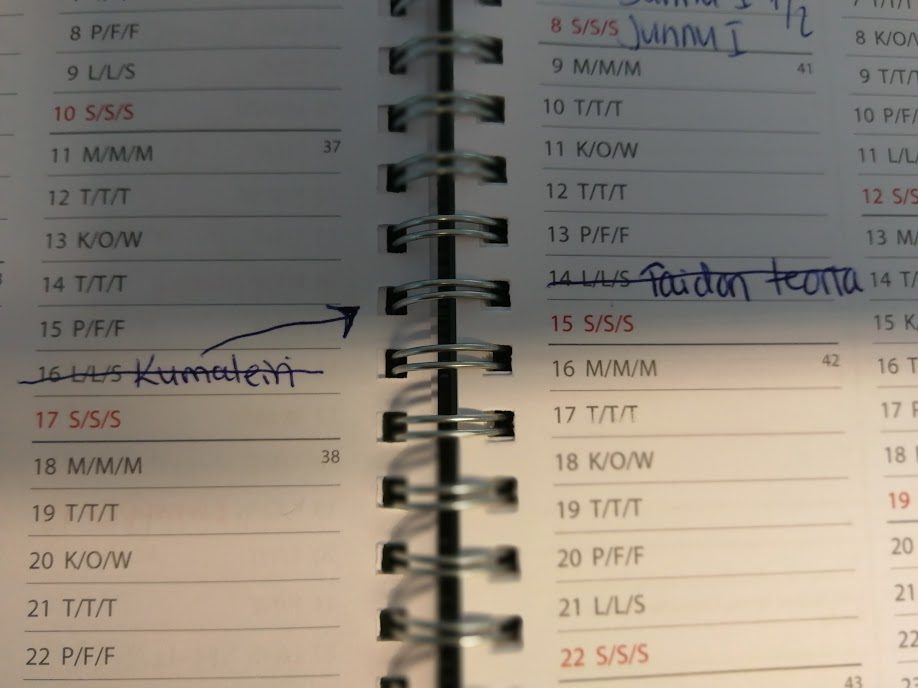 8 P/F/F
9 L/L/S
10 S/S/S
11 M/M/M 37
12 T/T/T
13 K/O/W
14 T/T/T
15 P/F/F
16 L/L/S Kumaleiri
17 S/S/S
18 M/M/M 38
19 T/T/T
20 K/O/W
21 T/T/T
22 P/F/F
1/2
8 S/S/S Junnu I
9 M/M/M 41
10 T/T/T
11 K/O/W
12 T/T/T
13 P/F/F
14 L/L/S Taidon teoria
15 S/S/S
16 M/M/M 42
17 T/T/T
18 K/O/W
19 T/T/T
20 P/F/F
21 L/L/S
22 S/S/S
43
8 K/O/
9 T/T/
10 P/F/
11 L/L/
12 S/S
13 M/
14 T/
15 K
16 T
17
18
19
20
21
22